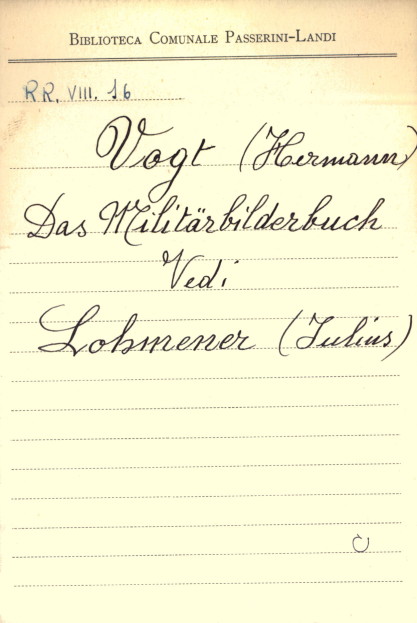 BIBLIOTECA COMUNALE PASSERINI-LANDI
RR. VIII. 16
Vogt (Hermann)
Das Militärbilderbuch
Vedi
Lohmener (Julius)